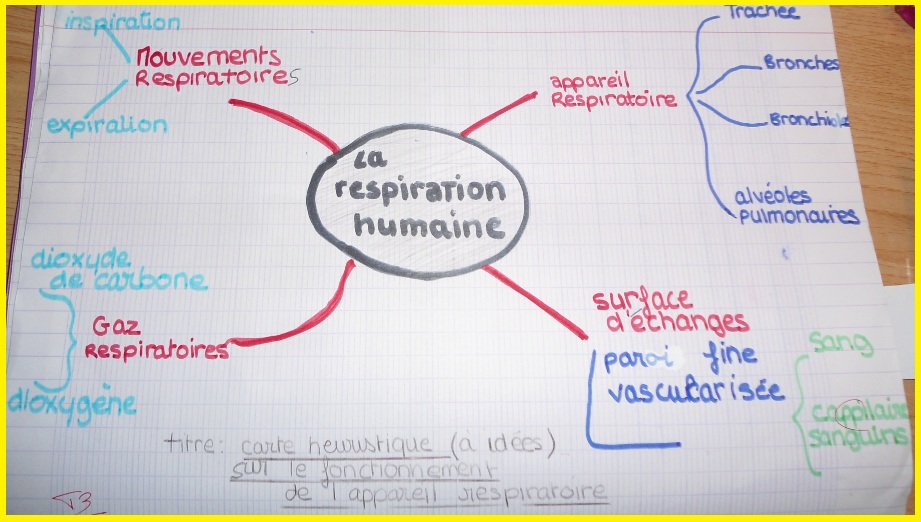 inspiration
Mouvements
Respiratoires
expiration
Trachée
Bronches
appareil
Respiratoire
Bronchiole
alvéoles
pulmonaires
La
respiration
humaine
dioxyde
de carbone
Gaz
Respiratoires
dioxygène
surface
d'échanges
paroi fine
vascularisée
sang
cappilaire
sanguins
titre: carte heuristique (à idées)
sur le fonctionnement
de l'appareil respiratoire